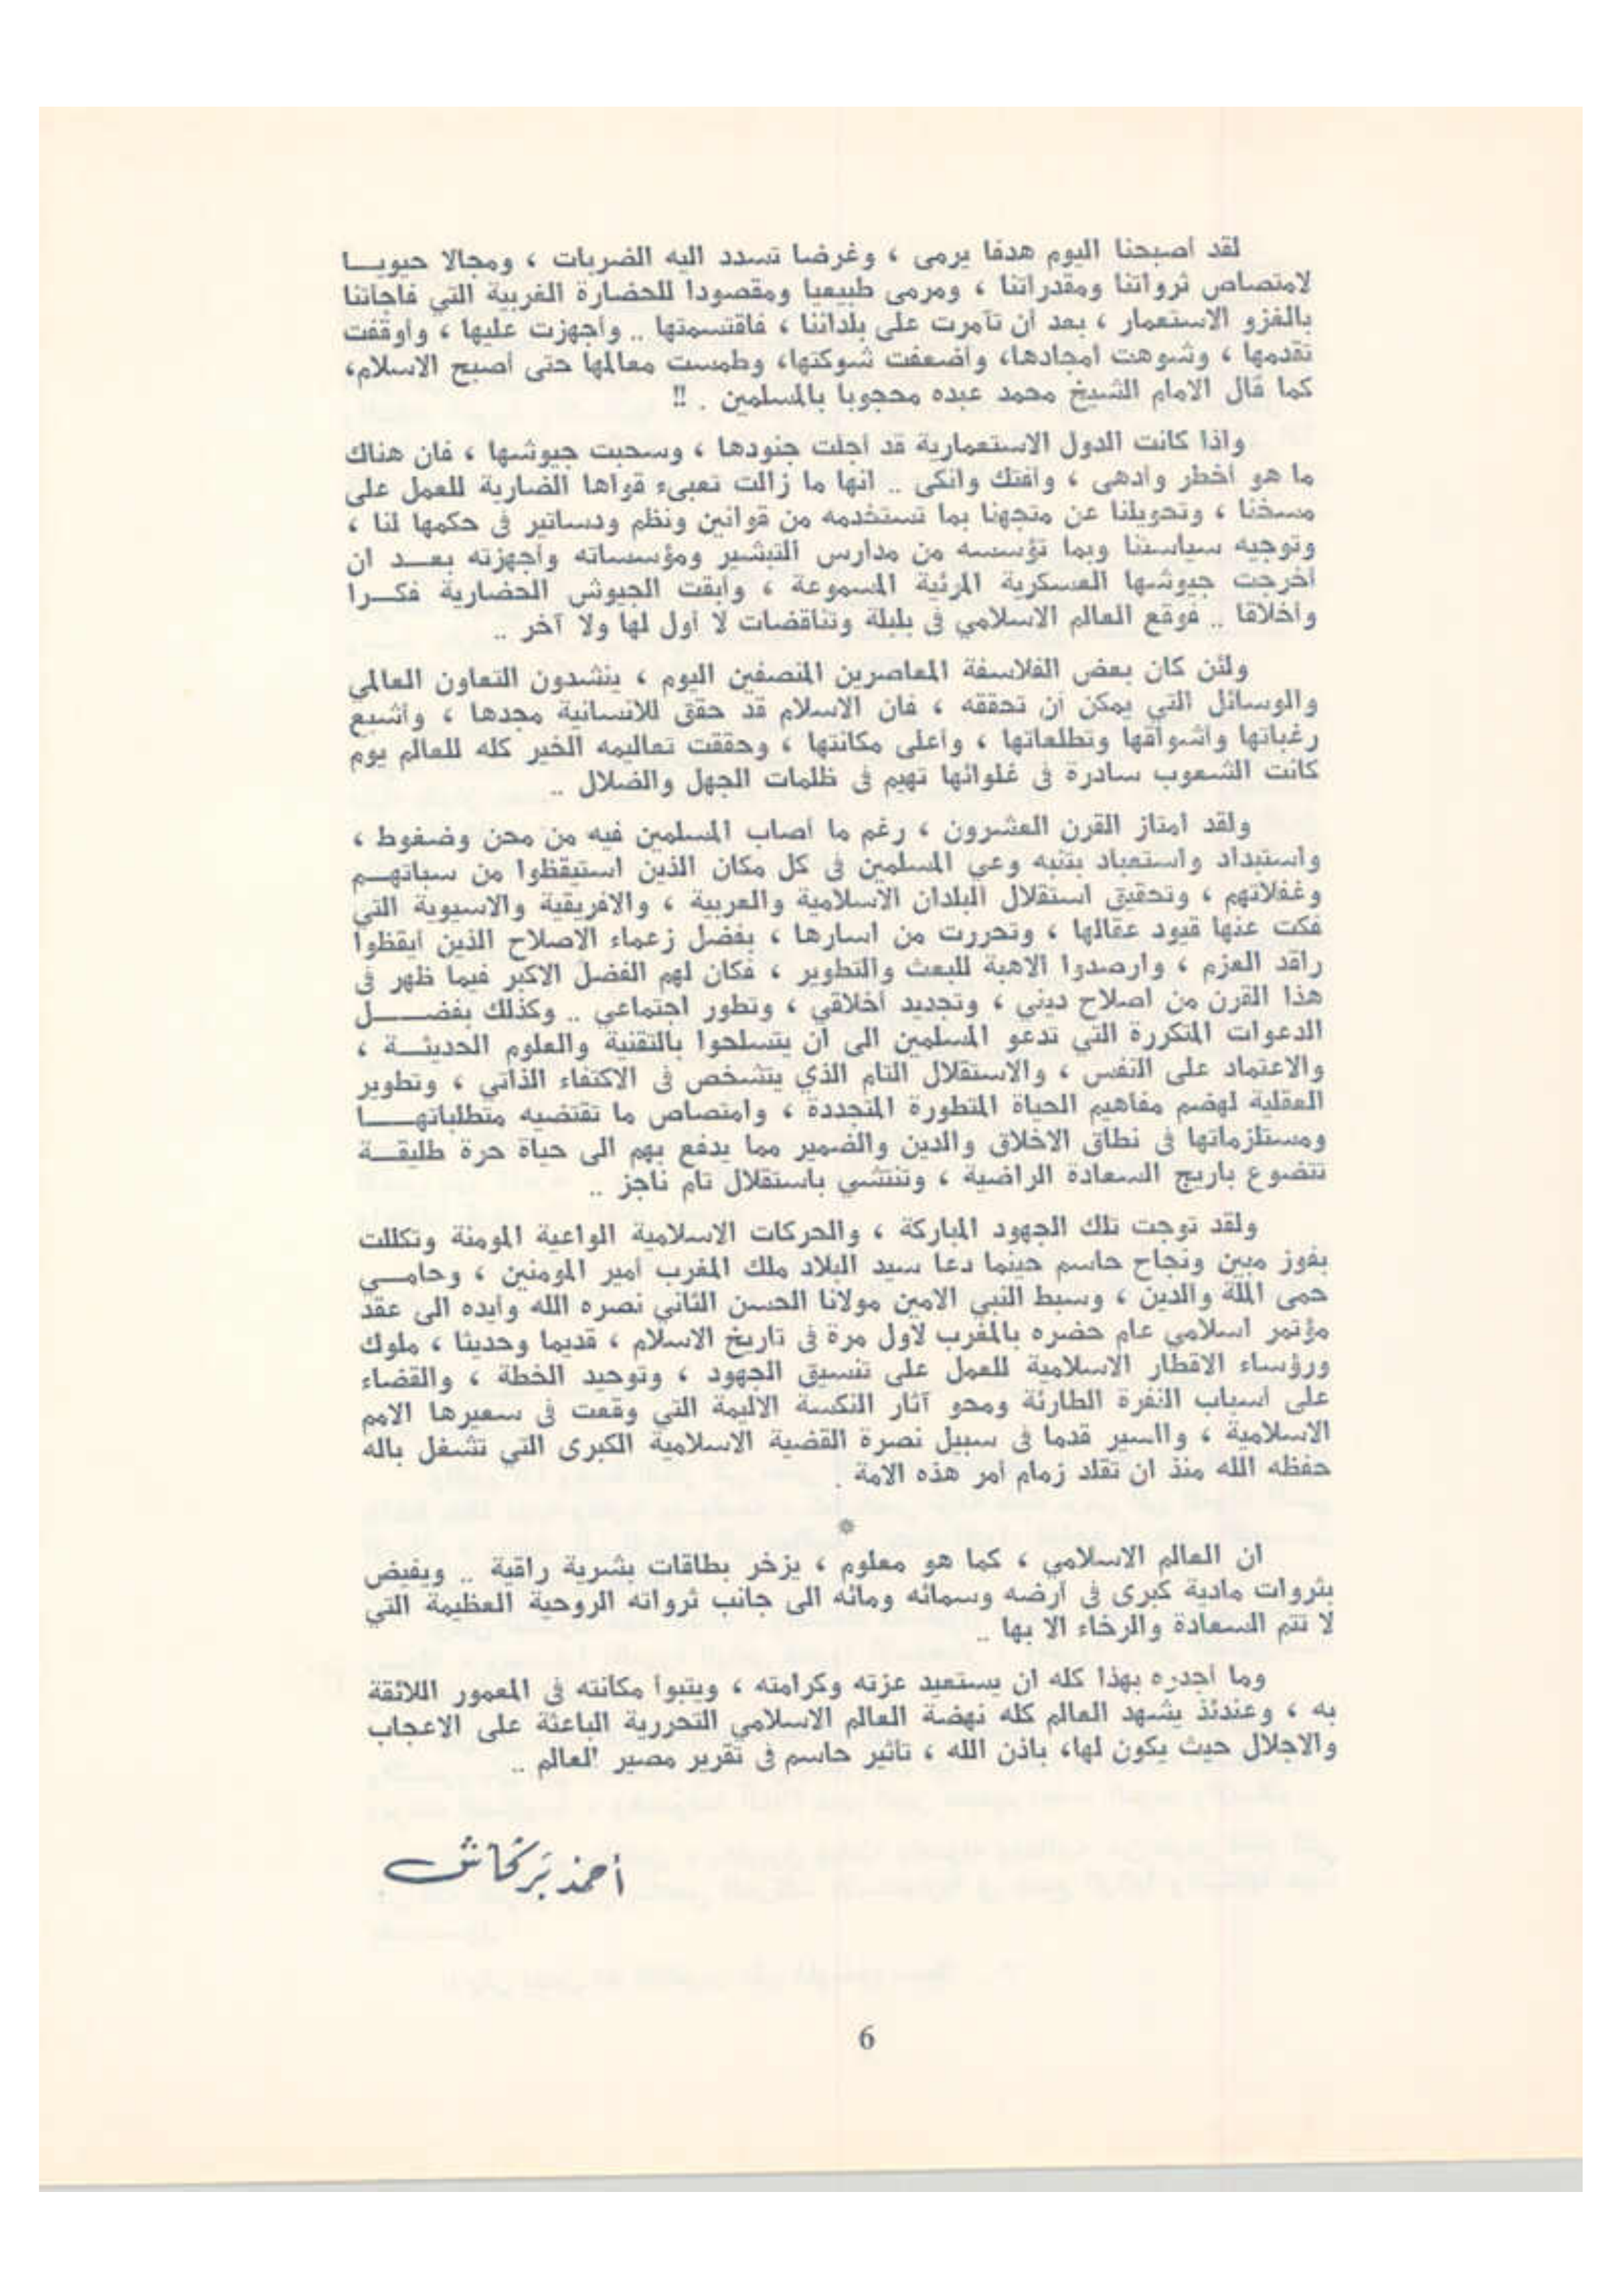 لقد أصبحنا اليوم هدفا يرمى ، وغرضا تسدد اليه الضربات ، ومجالا حيويـــا
لامتصاص ثرواتنا ومقدراتنا ، ومرمى طبيعيا ومقصودا للحضارة الغربية التي فاجأتنا
بالغزو الاستعمار ، بعد أن تآمرت على بلداننا ، فاقتسمتها .. وأجهزت عليها ، وأوقفت
تقدمها ، وشوهت أمجادها، وأضعفت شوكتها، وطمست معالمها حتى أصبح الاسلام،
كما قال الامام الشيخ محمد عبده محجوبا بالمسلمين . !!
واذا كانت الدول الاستعمارية قد أجلت جنودها ، وسحبت جيوشها ، فان هناك
ما هو أخطر وأدهى ، وأفتك وأنكى .. انها ما زالت تعبىء قواها الضارية للعمل على
مسخنا ، وتحويلنا عن متجهنا بما تستخدمه من قوانين ونظم ودساتير فى حكمها لنا ،
وتوجيه سياستنا وبما تؤسسه من مدارس التبشير ومؤسساته وأجهزته بعـــد ان
أخرجت جيوشها العسكرية المرئية المسموعة ، وأبقت الجيوش الحضارية فكـــرا
وأخلاقا .. فوقع العالم الاسلامي فى بلبلة وتناقضات لا أول لها ولا آخر ..
ولئن كان بعض الفلاسفة المعاصرين المنصفين اليوم ، ينشدون التعاون العالمي
والوسائل التي يمكن أن تحققه ، فان الاسلام قد حقق للانسانية مجدها ، وأشبع
رغباتها وأشواقها وتطلعاتها ، وأعلى مكانتها ، وحققت تعاليمه الخير كله للعالم يوم
كانت الشعوب سادرة فى غلوائها تهيم فى ظلمات الجهل والضلال ..
ولقد امتاز القرن العشرون ، رغم ما أصاب المسلمين فيه من محن وضغوط ،
واستبداد واستعباد بتنبه وعي المسلمين فى كل مكان الذين استيقظوا من سباتهـــم
وغفلاتهم ، وتحقيق استقلال البلدان الاسلامية والعربية ، والافريقية والاسيوية التي
فكت عنها قيود عقالها ، وتحررت من اسارها ، بفضل زعماء الاصلاح الذين أيقظوا
راقد العزم ، وارصدوا الاهبة للبعث والتطوير ، فكان لهم الفضل الاكبر فيما ظهر فى
هذا القرن من اصلاح ديني ، وتجديد أخلاقي ، وتطور اجتماعي .. وكذلك بفضـــــل
الدعوات المتكررة التي تدعو المسلمين الى أن يتسلحوا بالتقنية والعلوم الحديثـــة ،
والاعتماد على النفس ، والاستقلال التام الذي يتشخص فى الاكتفاء الذاتي ، وتطوير
العقلية لهضم مفاهيم الحياة المتطورة المتجددة ، وامتصاص ما تقتضيه متطلباتهـــــا
ومستلزماتها فى نطاق الاخلاق والدين والضمير مما يدفع بهم الى حياة حرة طليقـــة
تتضوع باريج السعادة الراضية ، وتنتشي باستقلال تام ناجز ..
ولقد توجت تلك الجهود المباركة ، والحركات الاسلامية الواعية المومنة وتكللت
بفوز مبين ونجاح حاسم حينما دعا سيد البلاد ملك المغرب أمير المومنين ، وحامـــي
حمى الملة والدين ، وسبط النبي الامين مولانا الحسن الثاني نصره الله وأيده الى عقد
مؤتمر اسلامي عام حضره بالمغرب لاول مرة فى تاريخ الاسلام ، قديما وحديثا ، ملوك
ورؤساء الاقطار الاسلامية للعمل على تنسيق الجهود ، وتوحيد الخطة ، والقضاء
على أسباب النفرة الطارئة ومحو آثار النكسة الاليمة التي وقعت فى سعيرها الامم
الاسلامية ، والسير قدما فى سبيل نصرة القضية الاسلامية الكبرى التي تشغل باله
حفظه الله منذ ان تقلد زمام أمر هذه الامة .
*
ان العالم الاسلامي ، كما هو معلوم ، يزخر بطاقات بشرية راقية .. ويفيض
بثروات مادية كبرى فى أرضه وسمائه ومائه الى جانب ثرواته الروحية العظيمة التي
لا تتم السعادة والرخاء الا بها ..
وما أجدره بهذا كله ان يستعيد عزته وكرامته ، ويتبوأ مكانته فى المعمور اللائقة
به ، وعندئذ يشهد العالم كله نهضة العالم الاسلامي التحررية الباعثة على الاعجاب
والاجلال حيث يكون لها، باذن الله ، تأثير حاسم فى تقرير مصير العالم ..
أحمد بركاش
6